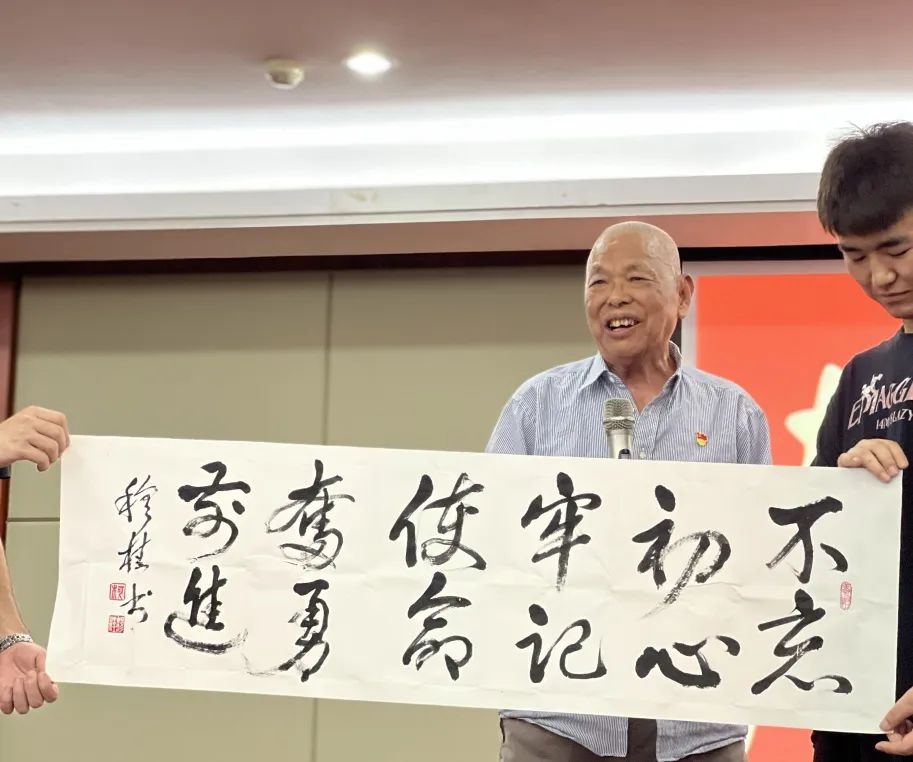 不忘
初心
牢记
使命
奋勇
前进
穆桂书